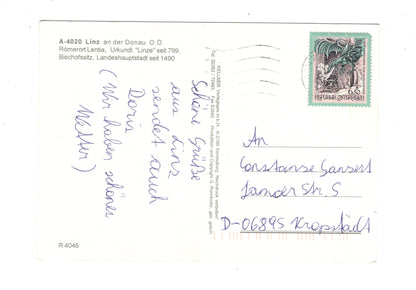 A-4020 Linz an der Donau O.Ö.
Römerort Lentia, Urkundl. "Linze" seit 799.
Bischofssitz, Landeshauptstadt seit 1490
Schöne Grüße
aus Linz
sendet auch
Doris
(Wir haben schönes
Wetter)
REPUBLIK ÖSTERREICH
An
Constanse Gansert
D-06895 Kropstädt
R 4046